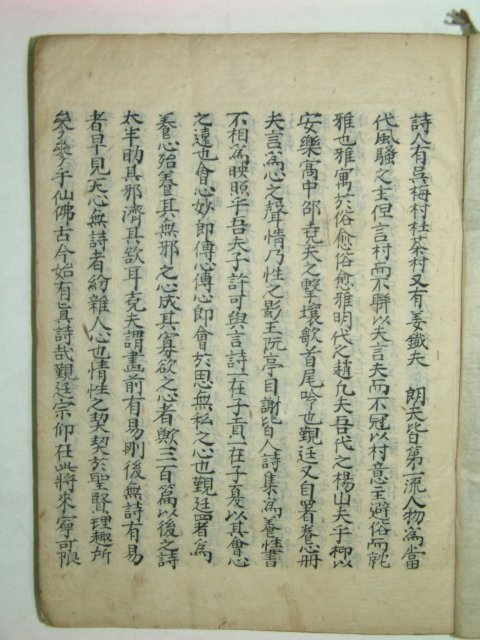 詩人有吳梅村杜茶村又有姜鐵夫　朗夫皆第一流人物爲當
代風騷之主但言村而不聯以夫言夫而不冠以村意主避俗而就
雅也雅寓於俗愈俗愈雅明代之趙凡夫吾代之楊山夫乎抑以
安樂窩中邵堯夫之擊壤歌首尾吟也觀廷又自署養心冊
夫言爲心之聲情乃性之影王阮亭目謝皆人詩集爲養性書
不相爲映照乎吾夫子許可與言詩一在子貢一在子夏以其會心
之遠也會心妙即傳心傳心即會於思無私之心也觀廷署爲
養心殆養其無邪之心成其寡欲之心者歟三百篇以後之詩
太半助其邪濟其欲耳堯夫謂畫前有易刪後無詩有易
者早見天心無詩者紛雜人心也情性之契契於聖賢理趣所
參參乎仙佛古今始有眞詩哉觀廷宗仰在此將來寧可限